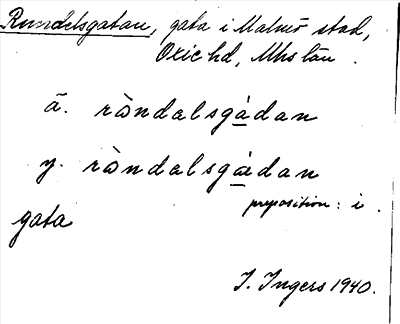 Rundelsgatan, gata i Malmö stad,
Oxie hd, Mhs län.
ä. ròndalsgàdan
y. ròndalsgàdan
preposition: i.
gata
I. Ingers 1940.